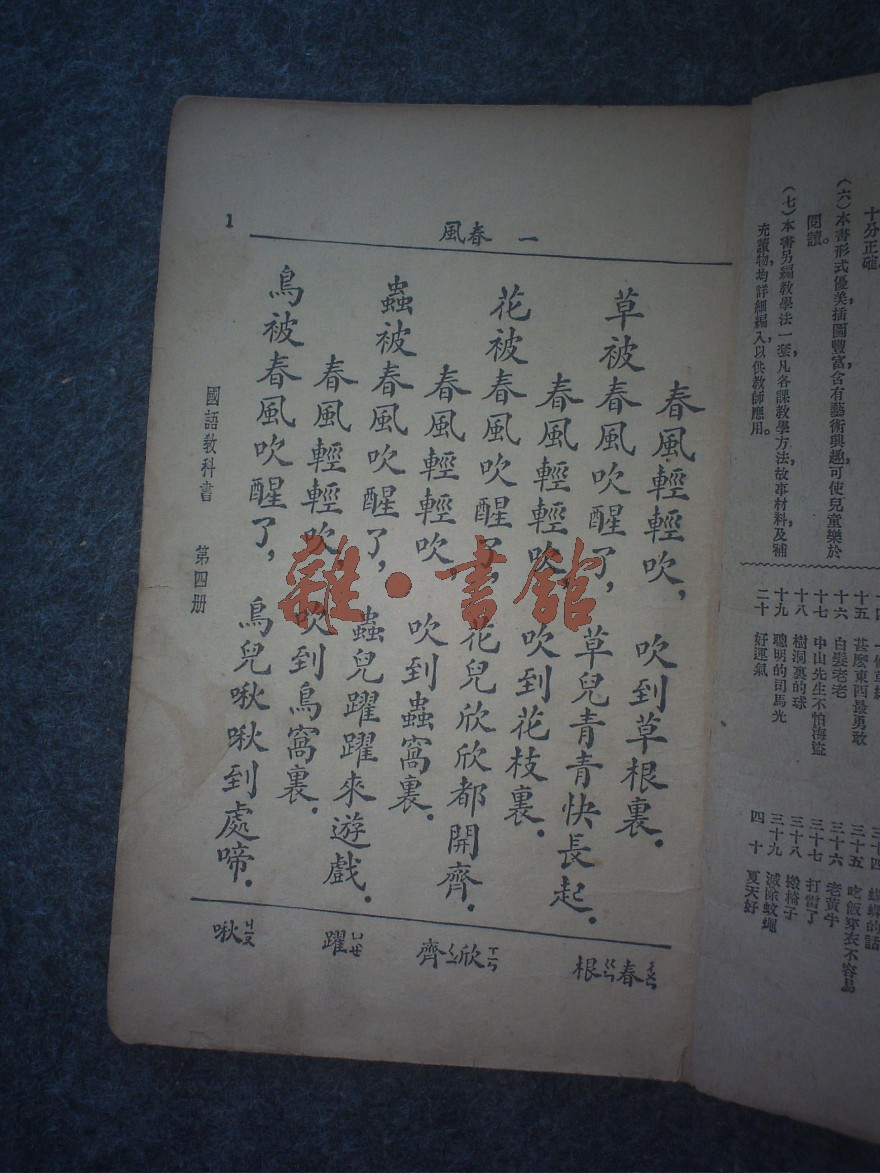 十分正確。
（六）本書形式優美，插圖豐富，含有藝術興趣，可使兒童樂於
閱讀。
（七）本書另編教學法一套，凡各課教學方法，故事材料，及補
充讀物，均詳細編入，以供教師應用。
十五 甚麽東西最勇敢
十六 白髮老老
十七 中山先生不怕海盜
十八 樹洞裏的球
十九 聰明的司馬光
二十 好運氣
三十四 蝴蝶的話
三十五 吃飯穿衣不容易
三十六 老黃牛
三十七 打雷了
三十八 搬椅子
三十九 滅除蚊蠅
四十 夏天好
一 春風
春風輕輕吹， 吹到草根裏．
草被春風吹醒了， 草兒青青快長起．
春風輕輕吹， 吹到花枝裏．
花被春風吹醒了， 花兒欣欣都開齊．
春風輕輕吹， 吹到蟲窩裏．
蟲被春風吹醒了， 蟲兒躍躍來遊戲．
春風輕輕吹， 吹到鳥窩裏．
鳥被春風吹醒了， 鳥兒啾啾到處啼．
春ㄔㄨㄣ 根ㄍㄣ
欣ㄒㄧㄣ 齊ㄑㄧ
躍ㄩㄝ
啾ㄐㄧㄡ
國語教科書 第四册
1
雜·書館